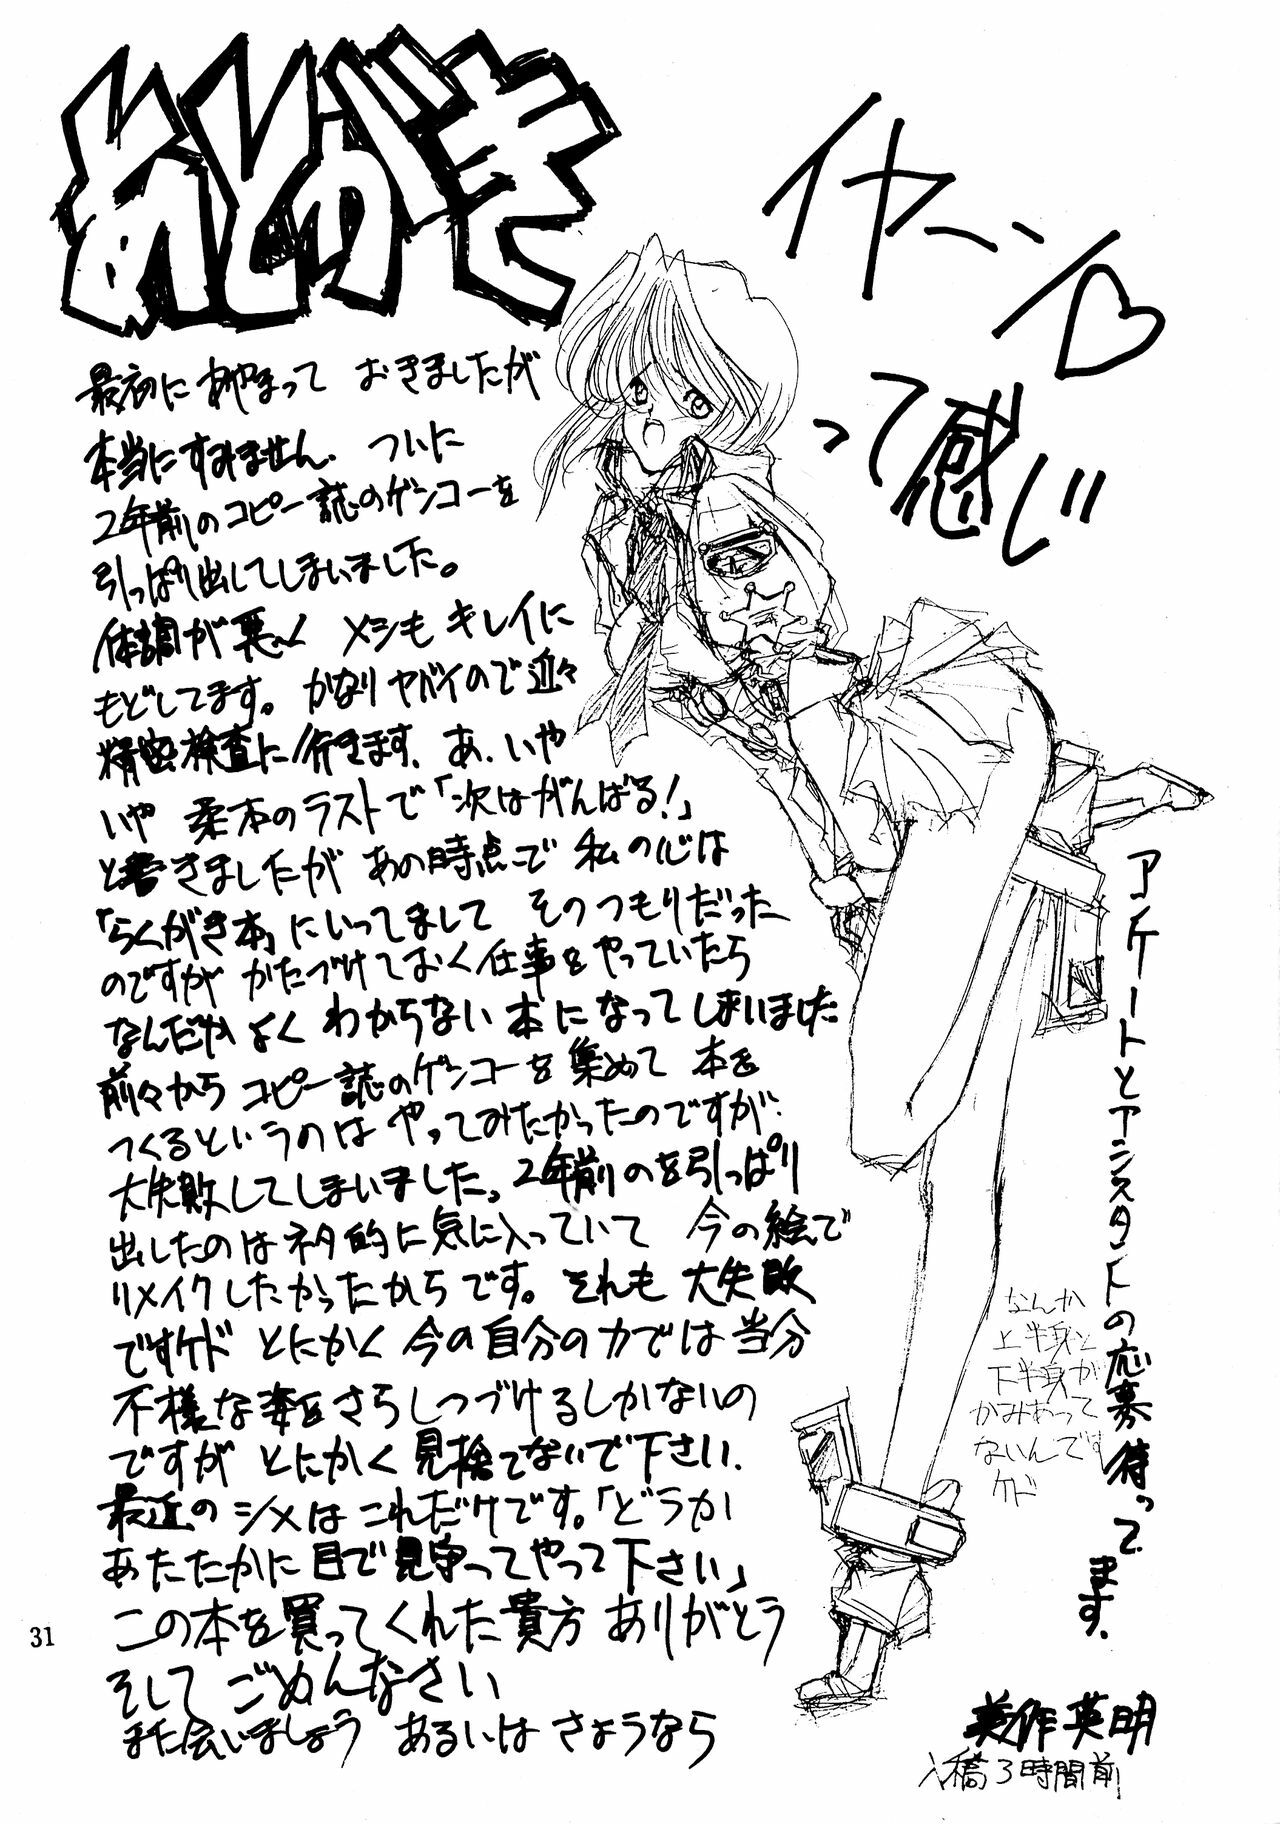 あとがき
イヤーン♡
って感じ
最初にあやまって おきましたが
本当にすみません. ついに
2年前のコピー誌のゲンコーを
引っぱり出してしまいました。
体調が悪く メシも キレイに
もどしてます。かなりヤバイので近々
精密検査に行きます. あ、いや
いや 柔本のラストで「次はがんばる!」
と書きましたが あの時点で 私の心は
「らくがき本」にいってまして そのつもりだった
のですが かたづけておく仕事をやっていたら
なんだかよく わからない本になってしまいました
前々から コピー誌のゲンコーを集めて 本を
つくるというのは やってみたかったのですが、
大失敗してしまいました。2年前のを引っぱり
出したのはネタ的に気に入っていて 今の絵で
リメイクしたかったからです。それも 大失敗
ですケド とにかく 今の自分の力では当分
不様な姿をさらしつづけるしかないの
ですが とにかく 見捨てないで下さい.
最近のシメはこれだけです。「どうか
あたたかに目で見守ってやって下さい」
この本を買ってくれた貴方 ありがとう
そして ごめんなさい
また会いましょう あるいは さようなら
アンケートとアシスタントの応募待ってます.
なんか
上半身と
下半身が
かみあって
ないんです
ケド
美作英明
入稿3時間前
31